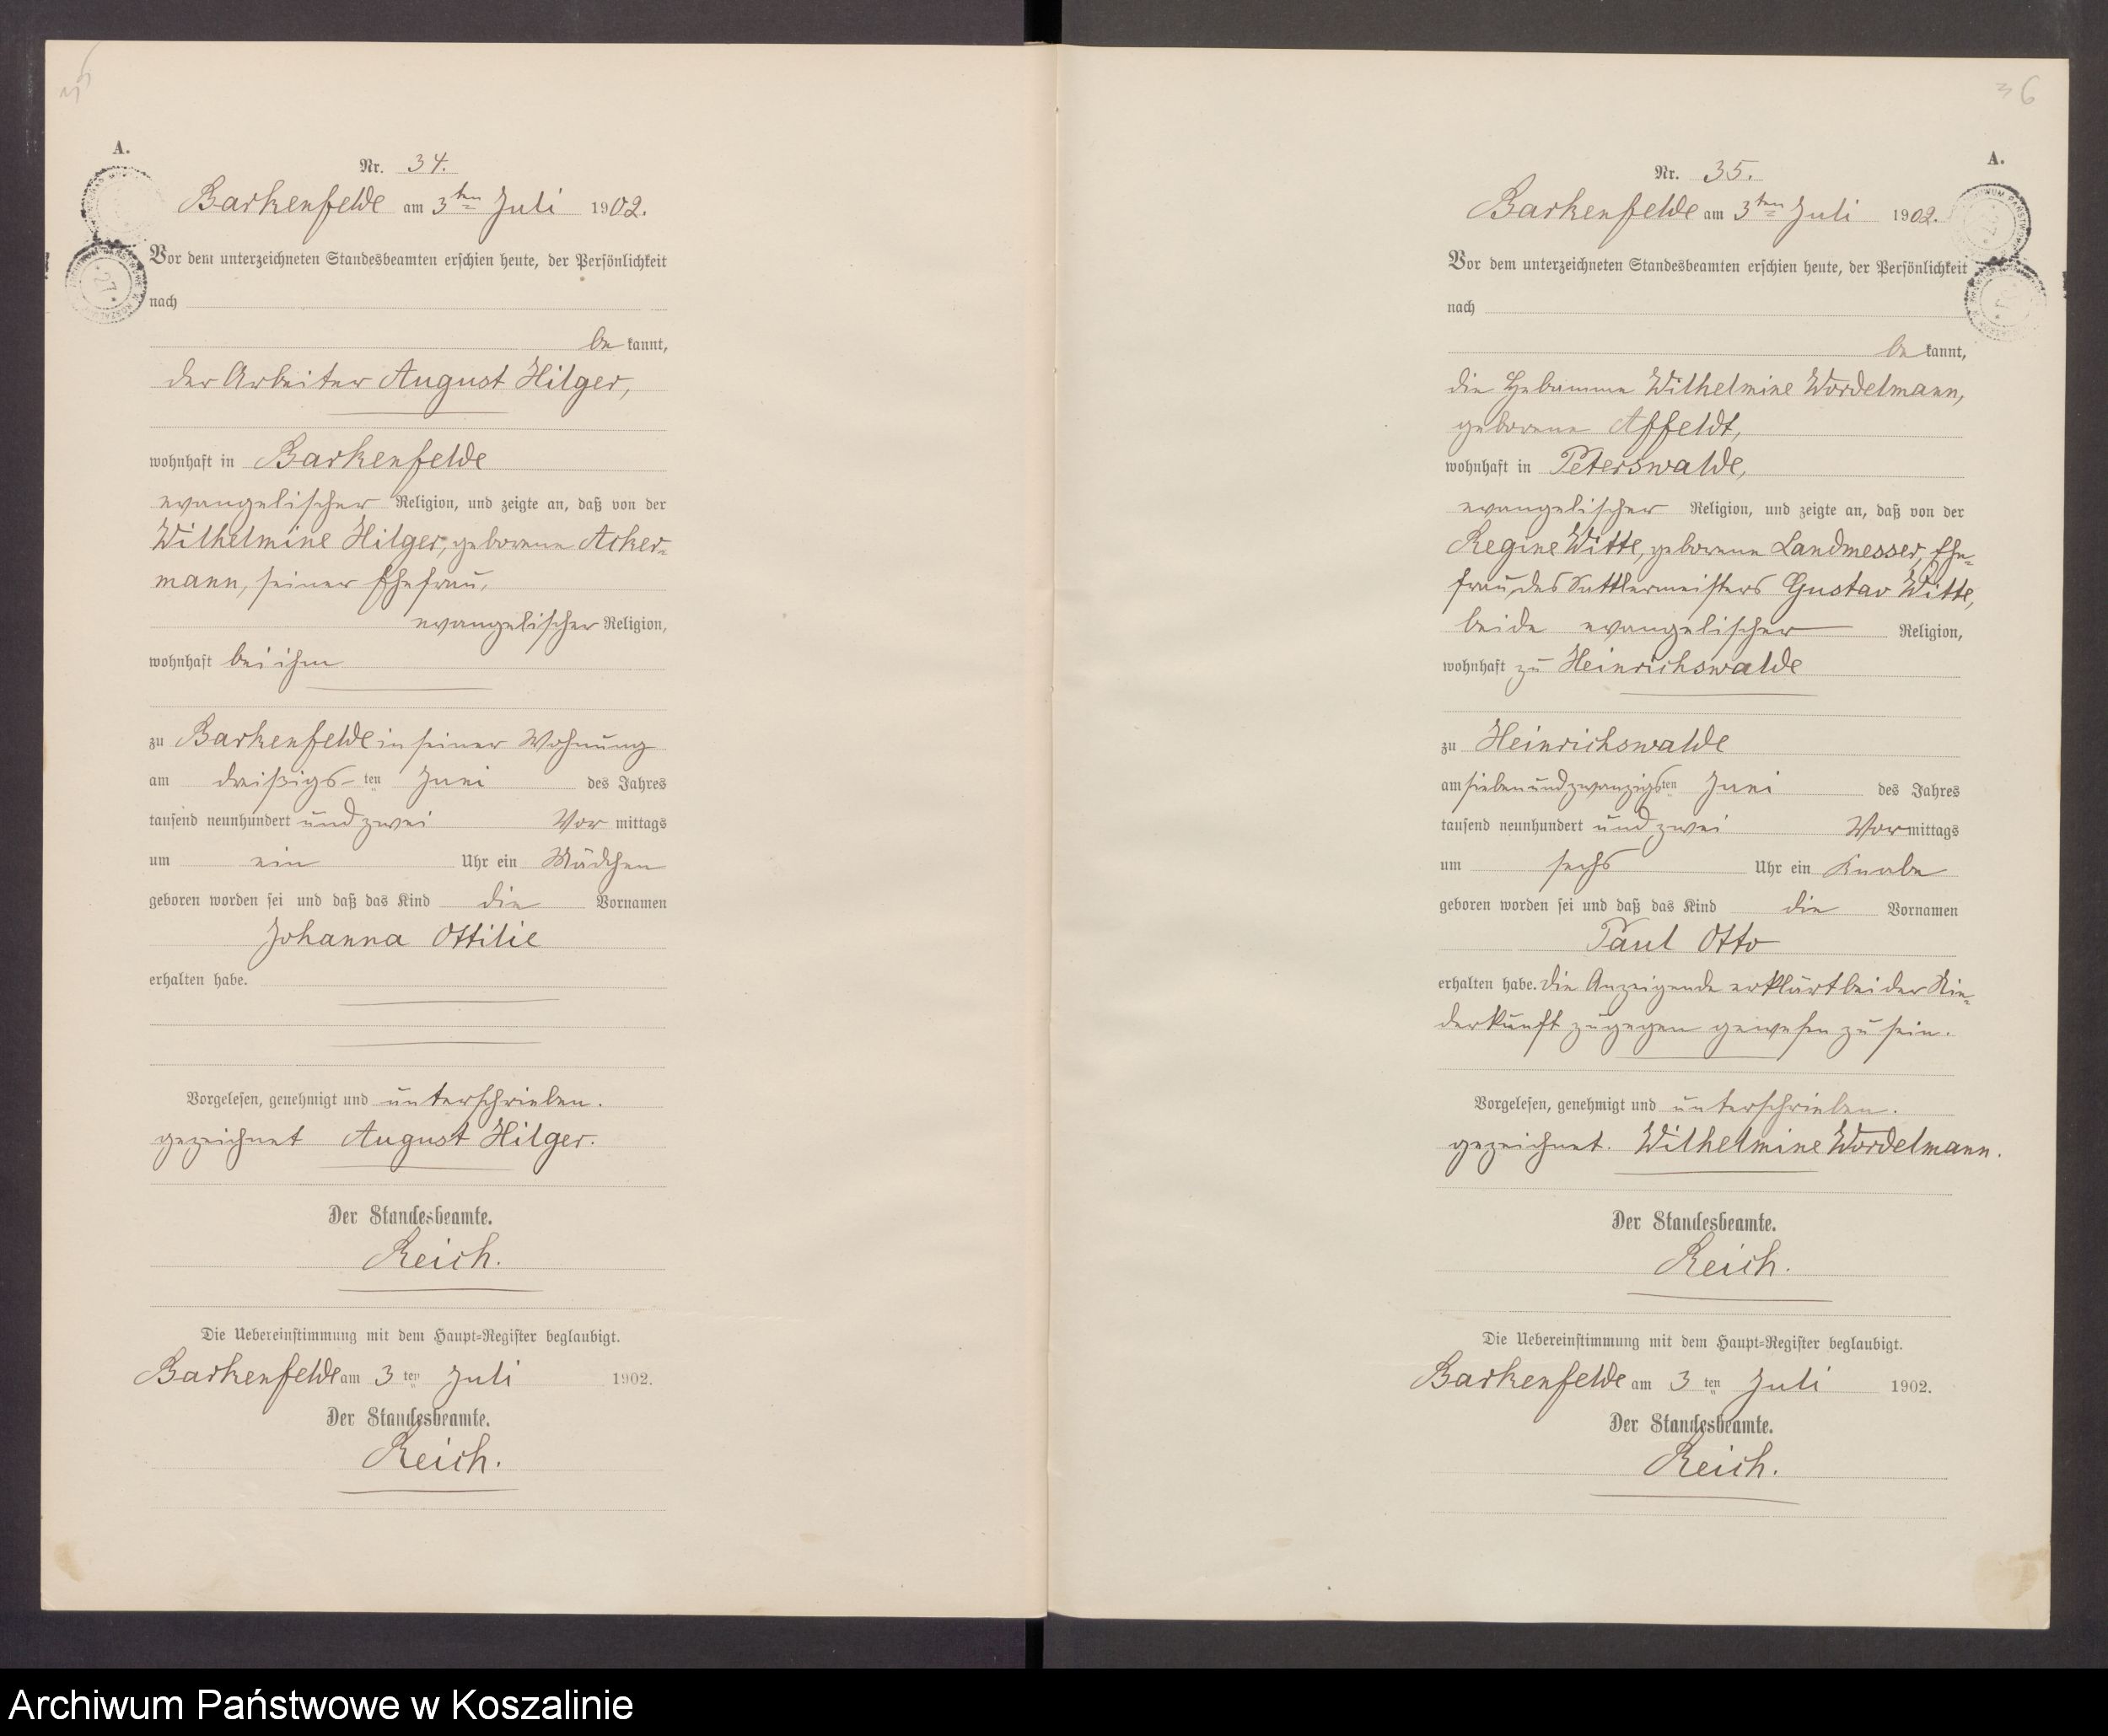 A.
Nr. 34.
Barkenfelde am 3ten Juli 1902.
Vor dem unterzeichneten Standesbeamten erschien heute, der Persönlichkeit
nach
be kannt,
der Arbeiter August Hilger,
wohnhaft in Barkenfelde
evangelischer Religion, und zeigte an, daß von der
Wilhelmine Hilger, geborene Acker-
mann, seiner Ehefrau,
evangelischer Religion,
wohnhaft bei ihm
zu Barkenfelde in seiner Wohnung
am dreißigs-ten Juni des Jahres
tausend neunhundert und zwei Vor mittags
um ein Uhr ein Mädchen
geboren worden sei und daß das Kind die Vornamen
Johanna Ottilie
erhalten habe.
Vorgelesen, genehmigt und unterschrieben.
gezeichnet August Hilger.
Der Standesbeamte.
Reich.
Die Uebereinstimmung mit dem Haupt-Register beglaubigt.
Barkenfelde am 3 ten Juli 1902.
Der Standesbeamte.
Reich.
36
A.
Nr. 35.
Barkenfelde am 3ten Juli 1902.
Vor dem unterzeichneten Standesbeamten erschien heute, der Persönlichkeit
nach
be kannt,
die Hebamme Wilhelmine Wordelmann,
geborene Affeldt,
wohnhaft in Peterswalde,
evangelischer Religion, und zeigte an, daß von der
Regine Witte, geborene Landmesser, Ehe-
frau des Sattlermeisters Gustav Witte,
beide evangelischer Religion,
wohnhaft zu Heinrichswalde
zu Heinrichswalde
am siebenundzwanzigsten Juni des Jahres
tausend neunhundert und zwei Vormittags
um sechs Uhr ein Knabe
geboren worden sei und daß das Kind die Vornamen
Paul Otto
erhalten habe. Die Anzeigende erklärt bei der Nie-
derkunft zugegen gewesen zu sein.
Vorgelesen, genehmigt und unterschrieben.
gezeichnet. Wilhelmine Wordelmann.
Der Standesbeamte.
Reich.
Die Uebereinstimmung mit dem Haupt-Register beglaubigt.
Barkenfelde am 3 ten Juli 1902.
Der Standesbeamte.
Reich.
Archiwum Państwowe w Koszalinie